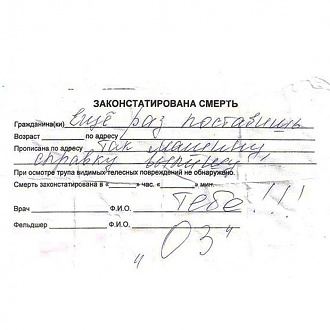 ЗАКОНСТАТИРОВАНА СМЕРТЬ
Гражданина(ки) ещё раз поставишь
Возраст по адресу
Прописана по адресу так машину,
справку выпишу
При осмотре трупа видимых телесных повреждений не обнаружено.
Смерть законстатирована в «____» час. «____» мин.
Тебе!!!
Врач Ф.И.О.
Фельдшер Ф.И.О.
"03"